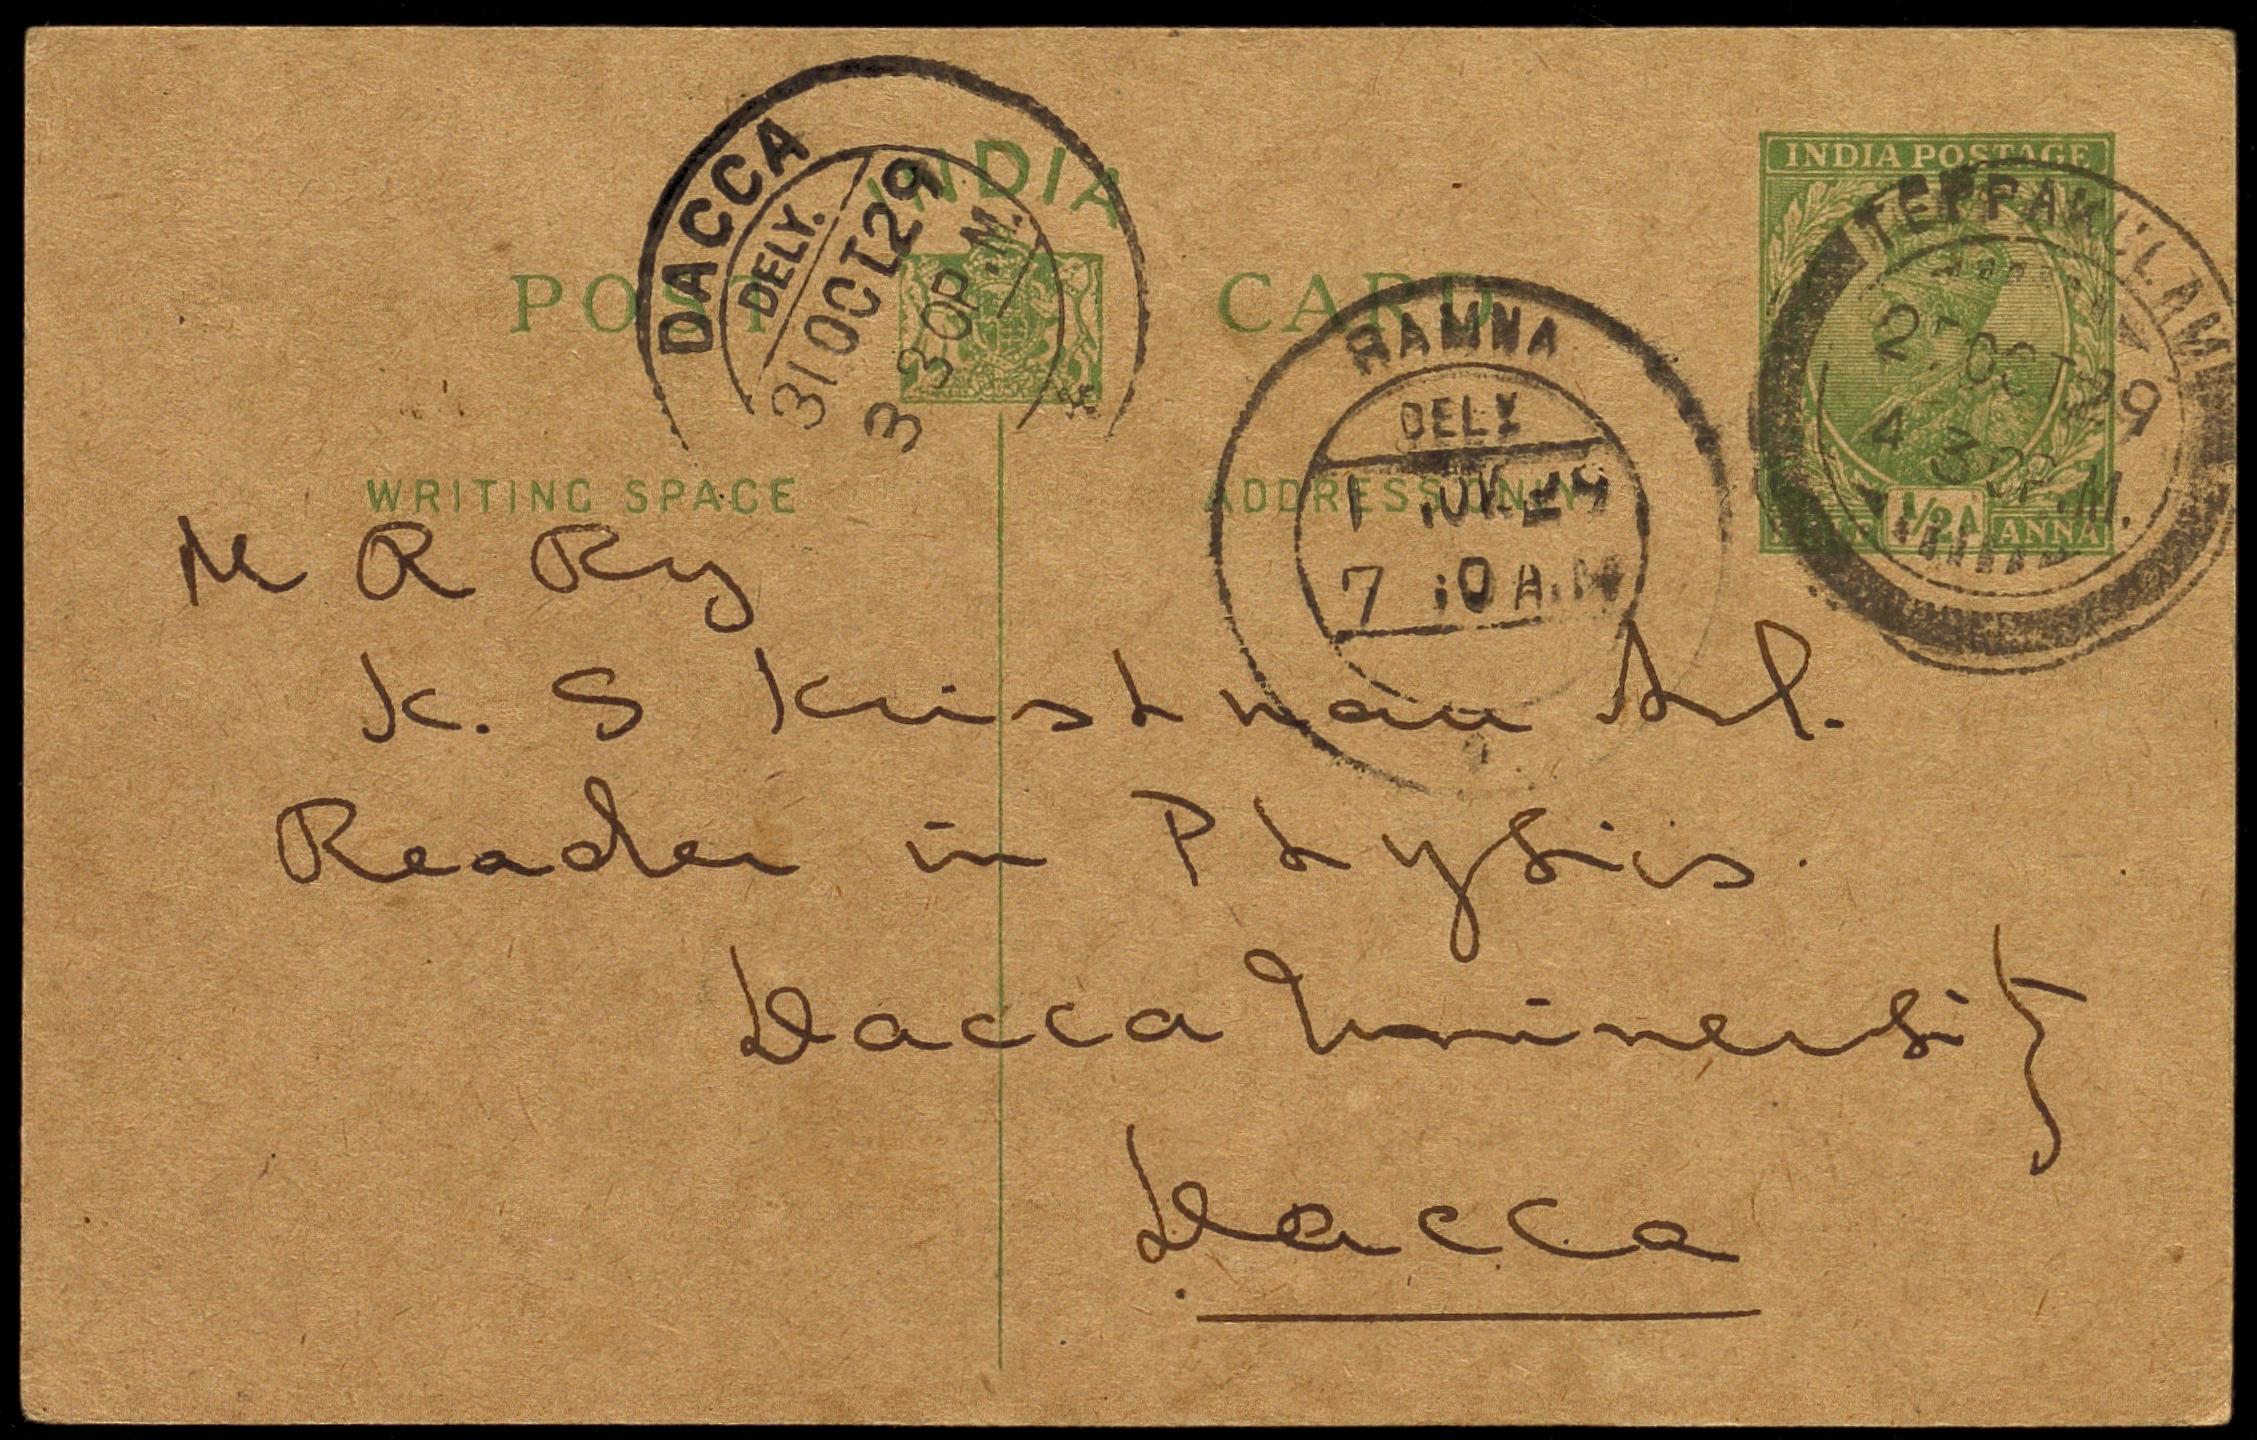 INDIA
POST CARD
WRITING SPACE
ADDRESS ONLY
INDIA POSTAGE
1/2 A
ANNA
DACCA
DELY.
31 OCT 29
3 30 P.M.
RAMNA
DELY
7 10 A.M
TEPPAKULAM
OCT 29
4 30 P.M.
M R Ry
K. S Krishnan Avl.
Reader in Physics.
Dacca University
Dacca